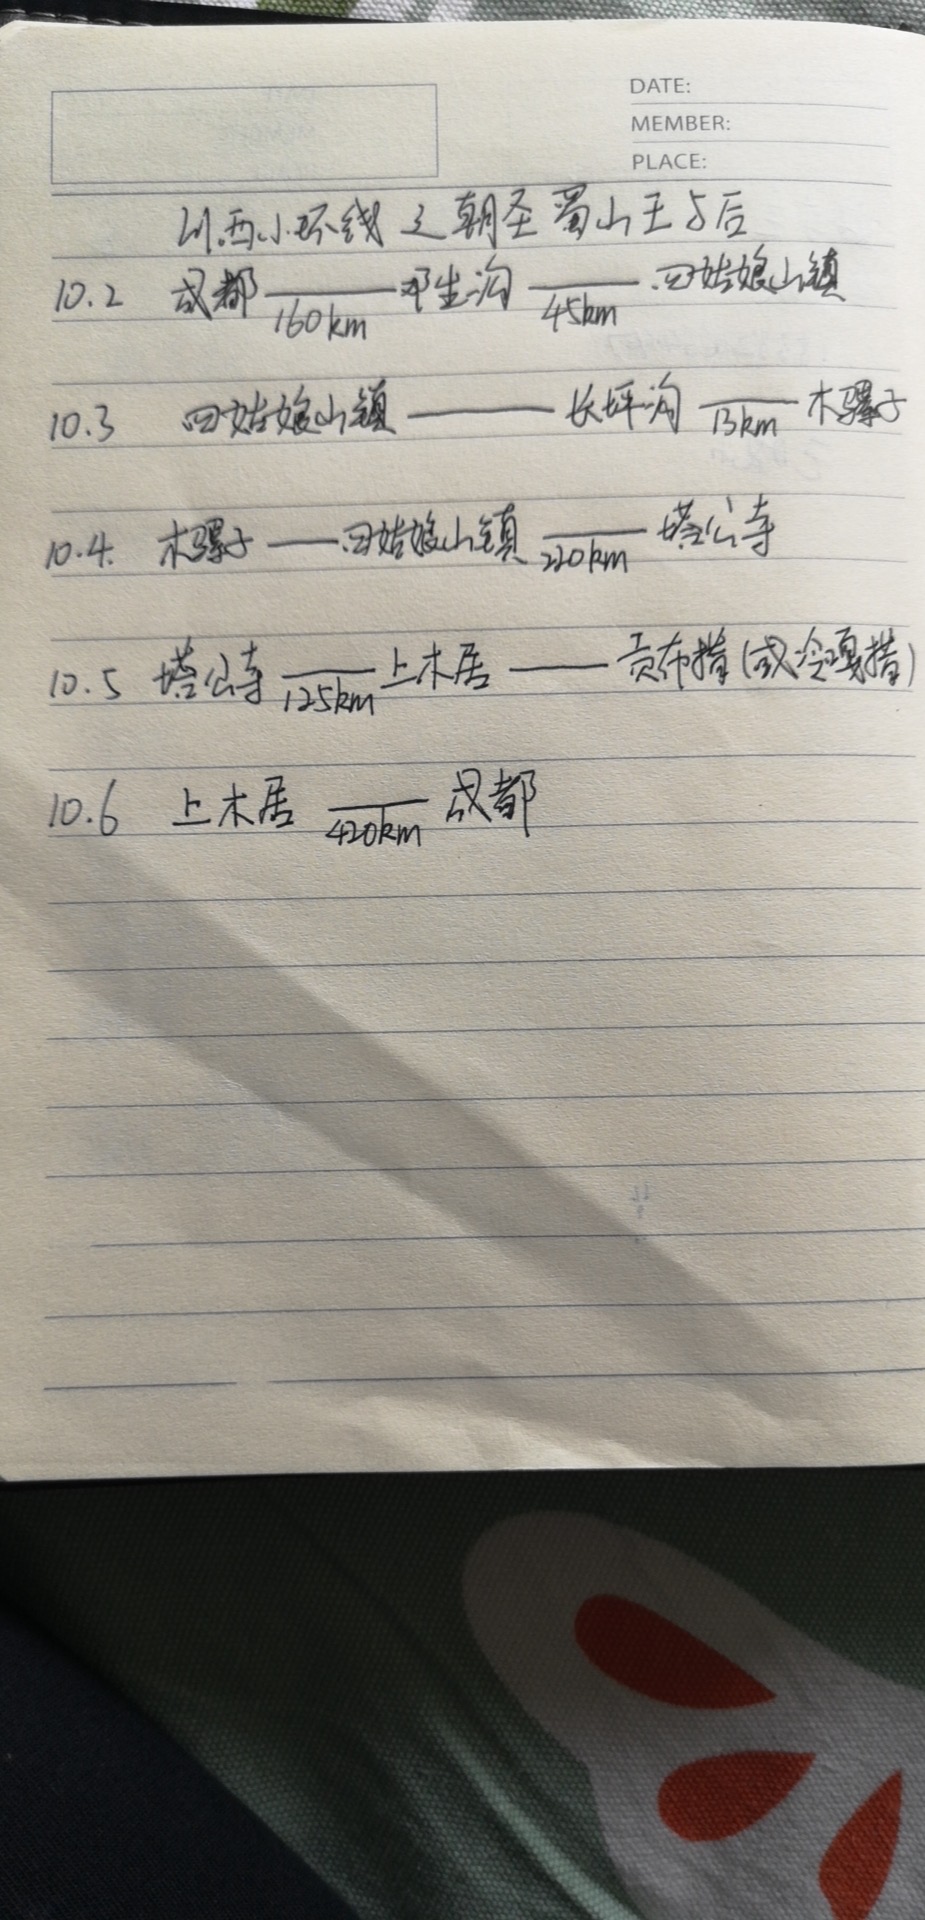 DATE:
MEMBER:
PLACE:
川西小环线之朝圣蜀山王与后
10.2 成都 —160km— 邓生沟 —45km— 四姑娘山镇
10.3 四姑娘山镇 —— 长坪沟 —13km— 木骡子
10.4. 木骡子 —— 四姑娘山镇 —220km— 塔公寺
10.5 塔公寺 —125km— 上木居 —— 贡布措(或冷嘎措)
10.6 上木居 —420km— 成都